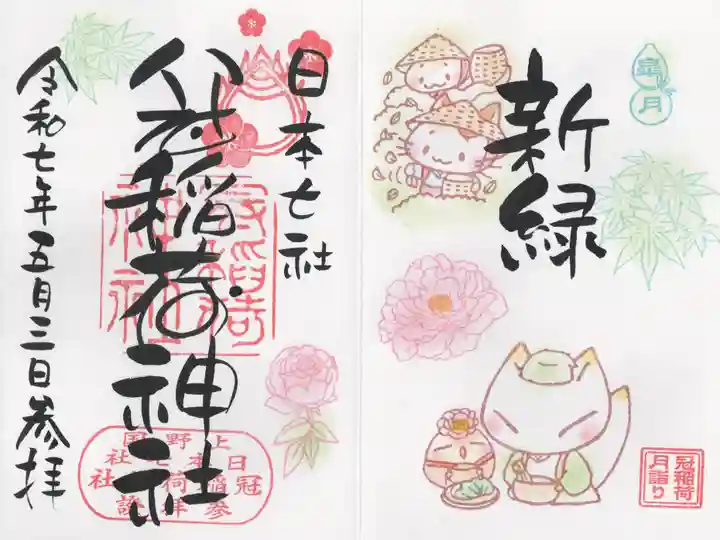 皐月
新緑
冠稲荷
月詣り
日本七社
冠稲荷神社
令和七年五月三日参拝
上野国
日本七社
冠稲荷
参拝證